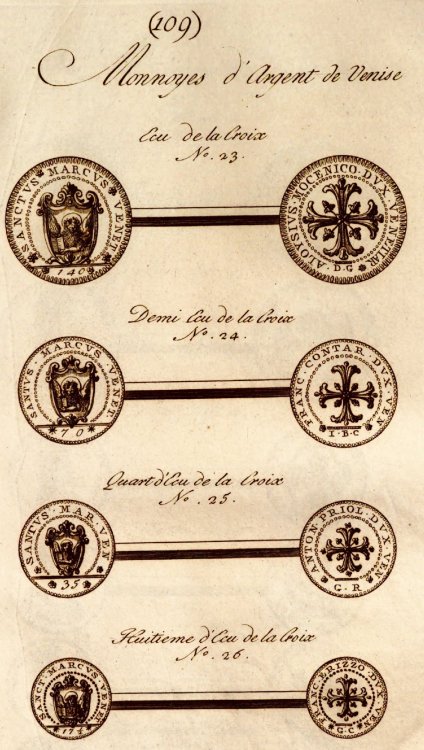 (109)
Monnoyes d'Argent de Venise
Ecu de la Croix
No. 23.
SANCTVS MARCVS VENET
140
ALOYSIUS MOCENICO DVX VENETIAR
D G
Demi Ecu de la Croix
No. 24.
SANTVS MARCVS VENET
70
FRANC CONTAR DVX VEN
I·B·C
Quart d'Ecu de la Croix
No. 25.
SANTVS MAR VEN
35
ANTON PRIOL DVX VEN
G·R
Huitieme d'Ecu de la Croix
No. 26.
SANCT MARCVS VENE
FRANC ERIZZO DVX
G·C